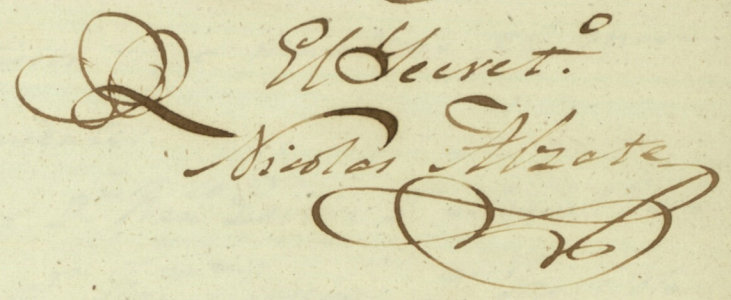 El Secret.º
Nicolas Alzate